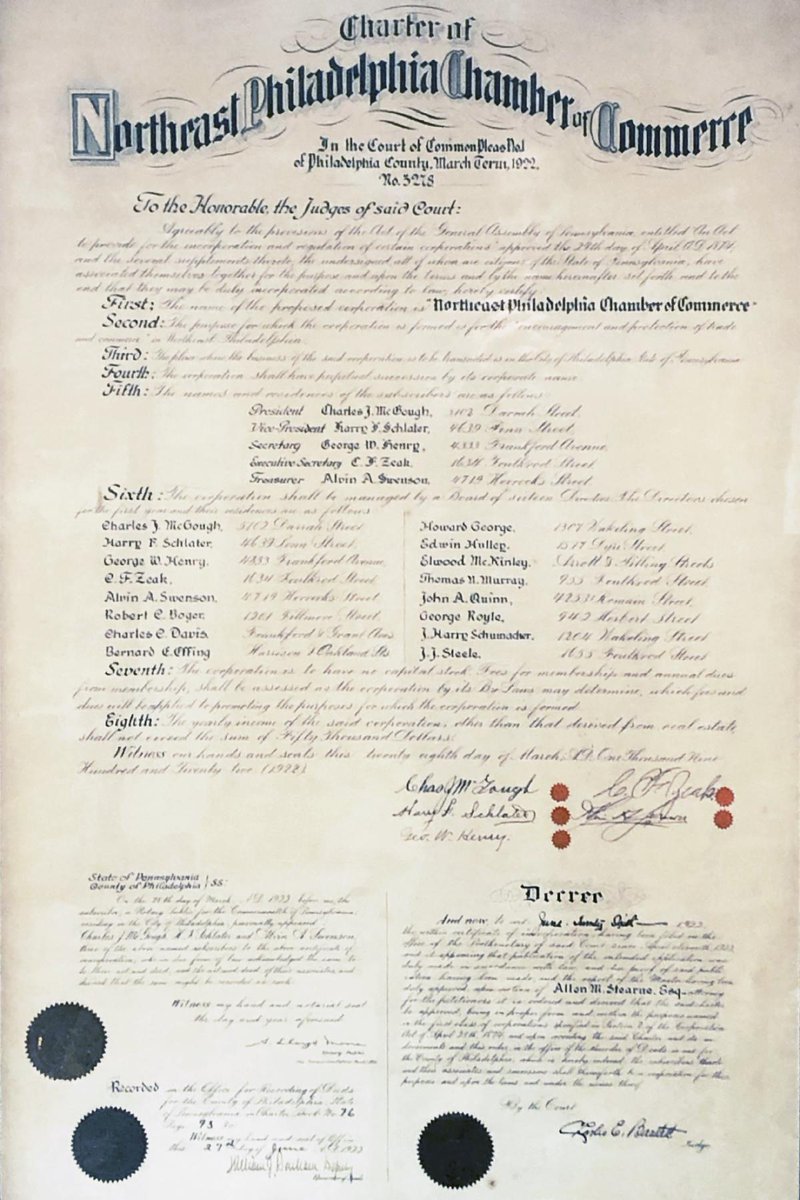 Charter of
Northeast Philadelphia Chamber of Commerce
In the Court of Common Pleas No.1
of Philadelphia County, March Term, 1922.
No. 5278
To the Honorable, the Judges of said Court:
Agreeably to the provisions of the Act of the General Assembly of Pennsylvania, entitled "An Act
to provide for the incorporation and regulation of certain corporations" approved the 29th day of April A.D. 1874,
and the several supplements thereto, the undersigned all of whom are citizens of the State of Pennsylvania, have
associated themselves together for the purpose and upon the terms and by the name hereinafter set forth, and to the
end that they may be duly incorporated according to law, hereby certify:
First: The name of the proposed corporation is "Northeast Philadelphia Chamber of Commerce"
Second: The purpose for which the corporation is formed is for the "encouragement and protection of trade
and commerce" in Northeast Philadelphia.
Third: The place where the business of the said corporation is to be transacted is in the City of Philadelphia, State of Pennsylvania.
Fourth: The corporation shall have perpetual succession by its corporate name.
Fifth: The names and residences of the subscribers are as follows
President Charles J. McGough, 5102 Darrah Street,
Vice-President Harry F. Schlater, 4639 Street,
Secretary George W. Henry, 4333 Frankford Avenue,
Executive Secretary C. F. Zeak, 1634 Foulkrod Street
Treasurer Alvin A. Swenson, 4719 Horrocks Street
Sixth: The corporation shall be managed by a Board of sixteen Directors. The Directors chosen
for the first year and their residences are as follows
Charles J. McGough, 5102 Darrah Street
Harry F. Schlater, 4639 Street,
George W. Henry, 4333 Frankford Avenue,
C. F. Zeak, 1634 Foulkrod Street
Alvin A. Swenson, 4719 Horrocks Street
Robert C. Boger, 1201 Fillmore Street,
Charles C. Davis, Frankford & Grant Aves
Bernard C. Effing Harrison & Oakland Sts
Howard George, 1307 Wakeling Street,
Edwin Hulley, 1517 Dyre Street
Elwood McKinley, Arrott & Streets
Thomas N. Murray, 955 Foulkrod Street
John A. Quinn, 4253 Romain Street,
George Royle, 942 Herbert Street
J. Harry Schumacher, 1204 Wakeling Street
J.J. Steele, 1655 Foulkrod Street
Seventh: The corporation is to have no capital stock. Fees for membership and annual dues
from membership, shall be assessed as the corporation by its By Laws may determine, which fees and
dues will be applied to promoting the purposes for which the corporation is formed.
Eighth: The yearly income of the said corporation, other than that derived from real estate,
shall not exceed the sum of Fifty Thousand Dollars.
Witness our hands and seals this twenty eighth day of March, A.D. One Thousand Nine
Hundred and Twenty two (1922).
Chas J McGough
C. F. Zeak
Harry F. Schlater
Geo. W. Henry.
State of Pennsylvania
County of Philadelphia } SS:
On the day of March, A.D. 1922 before me, the
subscriber, a Notary Public for the Commonwealth of Pennsylvania,
residing in the City of Philadelphia, personally appeared
Charles J. McGough, H. F. Schlater and Alvin A. Swenson,
three of the above named subscribers to the above certificate of
incorporation, who in due form of law acknowledged the same to
be their act and deed, and the act and deed of their associates, and
desired that the same might be recorded as such.
Witness my hand and notarial seal
the day and year aforesaid
Notary Public
Recorded in the Office for Recording of Deeds
for the County of Philadelphia, State
of Pennsylvania in Charter Book No. 76
Page 93 &c
Witness my hand and seal of Office
this 27th day of June A.D. 1922
William Deputy
Decree
And now to wit June 1922
the within certificate of incorporation having been filed in the
office of the Prothonotary of said Court since 1922,
and it appearing that publication of the intended application was
duly made in accordance with law, and due proof of said
having been made, and the report of the Master having been
duly approved, upon motion of Allen M. Stearne, Esq. attorney
for the petitioners it is ordered and decreed that the said charter
be approved, being in proper form and within the purposes named
in the first class of corporations specified in Section 2 of the Corporation
Act of April 29th 1874, and upon recording the said Charter and its
and this order, in the office of the Recorder of Deeds in and for
the County of Philadelphia, which is hereby ordered, the subscribers thereto
and their associates and successors shall thenceforth be a corporation for the
purposes and upon the terms and under the name thereof
By the Court
Judge